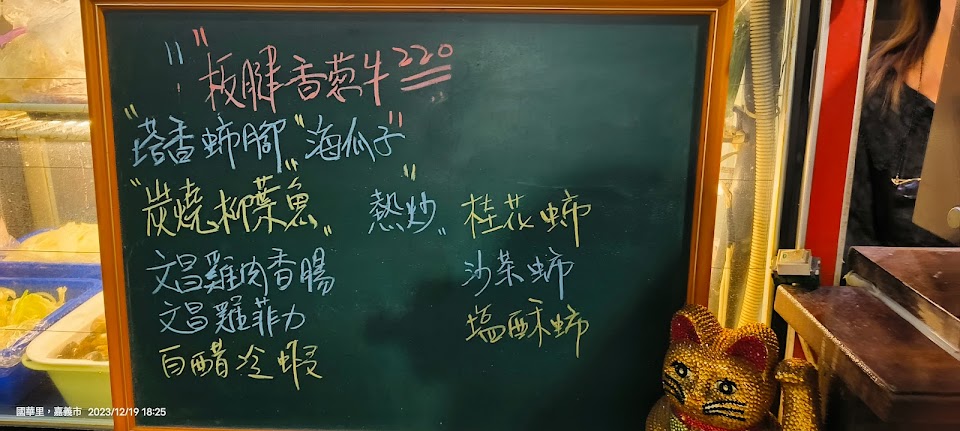 "板腱香蔥牛220
"塔香蚵腳" "海瓜子"
"炭燒柳葉魚" "熱炒" 桂花蚵
文昌雞肉香腸 沙茶蚵
文昌雞菲力 塩酥蚵
白醋冷蝦
國華里，嘉義市 2023/12/19 18:25